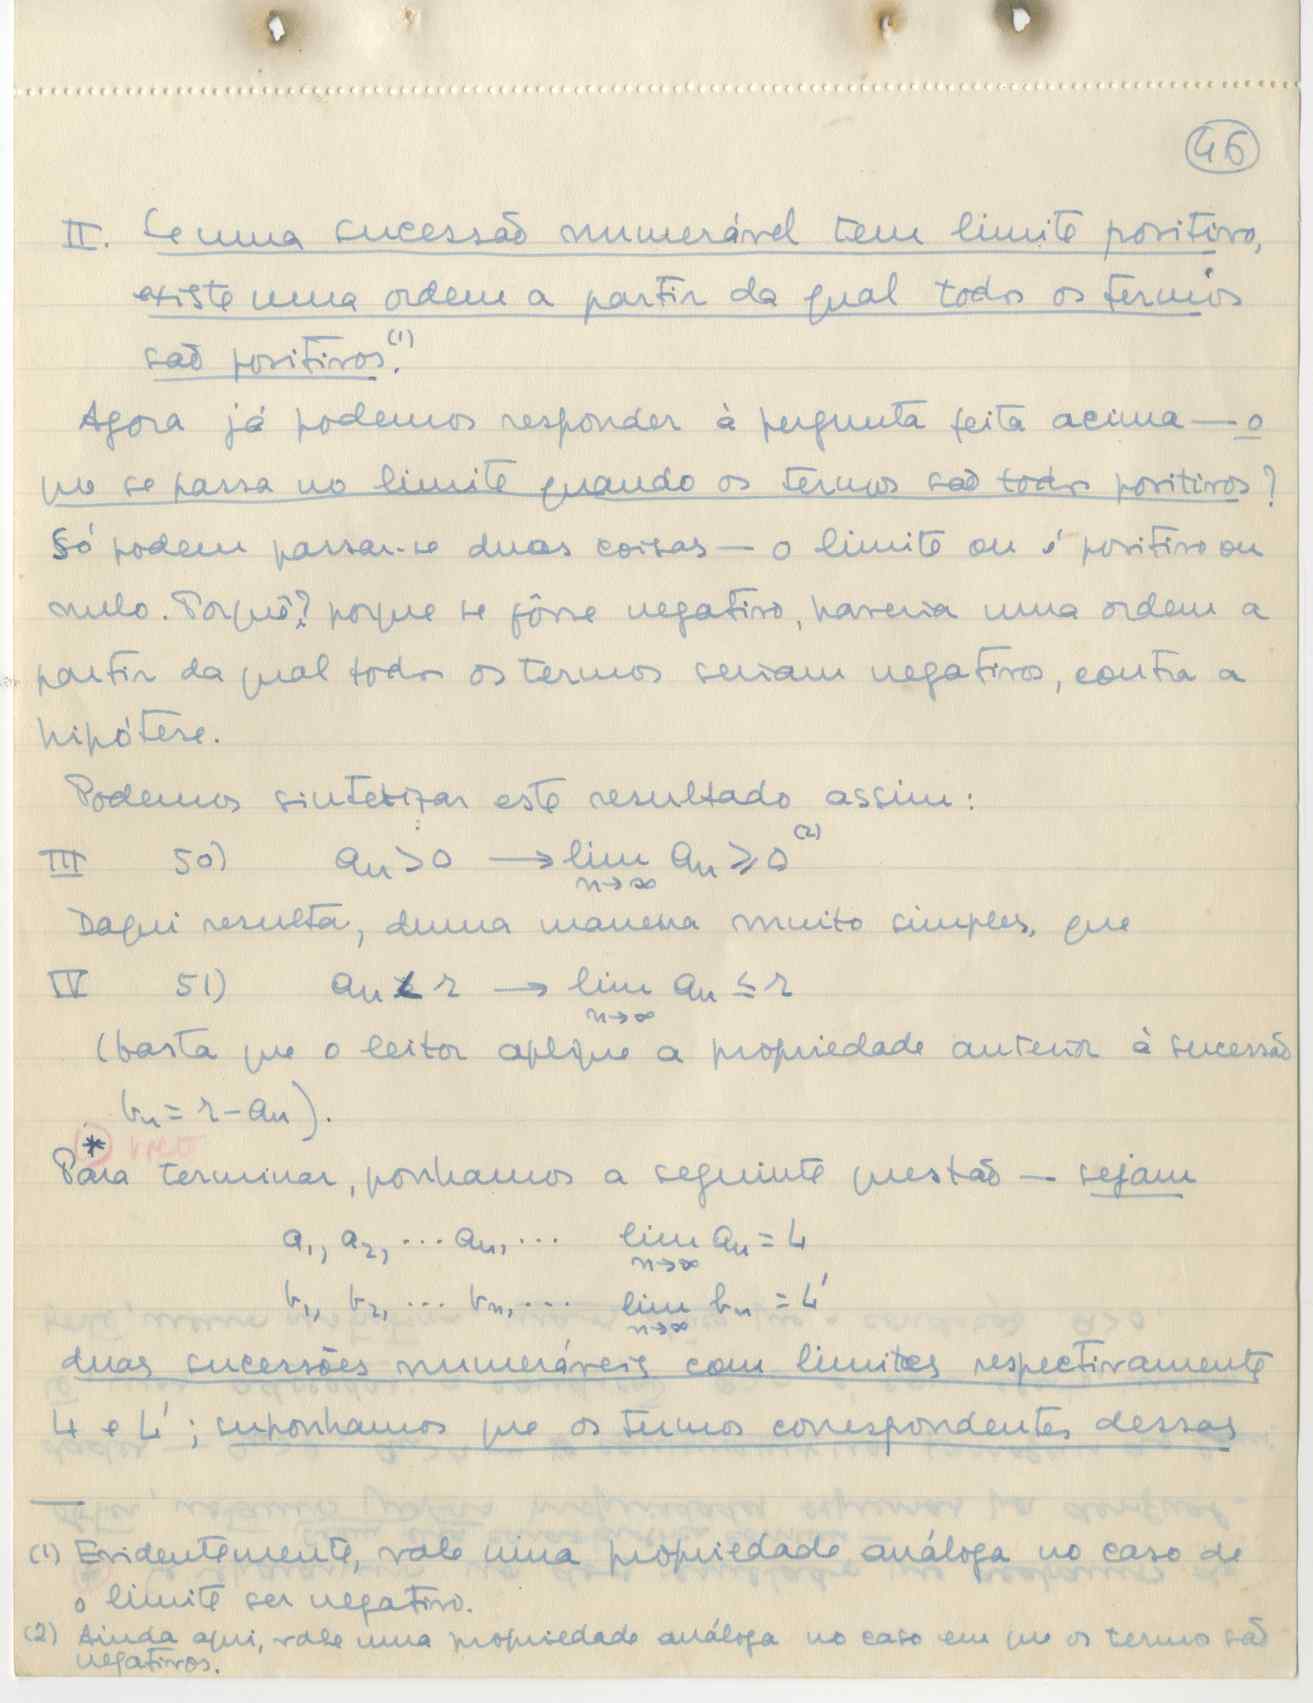 46
II. Se uma sucessão numerável tem limite positivo,
existe uma ordem a partir da qual todos os termos
são positivos.(1)
Agora já podemos responder à pergunta feita acima — o
que se passa no limite quando os termos são todos positivos?
Só podem passar-se duas coisas — o limite ou é positivo ou
nulo. Porquê? porque se fôsse negativo, haveria uma ordem a
partir da qual todos os termos seriam negativos, contra a
hipótese.
Podemos sintetizar este resultado assim:
III 50) an > 0 → lim an ≥ 0 (2)
n→∞
Daqui resulta, duma maneira muito simples, que
IV 51) an < r → lim an ≤ r
n→∞
(basta que o leitor aplique a propriedade anterior à sucessão
bn = r - an).
*
Para terminar, ponhamos a seguinte questão — sejam
a1, a2, ... an, ... lim an = L
n→∞
b1, b2, ... bn, ... lim bn = L'
n→∞
duas sucessões numeráveis com limites respectivamente
L e L'; suponhamos que os termos correspondentes dessas
(1) Evidentemente, vale uma propriedade análoga no caso de
o limite ser negativo.
(2) Ainda aqui, vale uma propriedade análoga no caso em que os termos são
negativos.